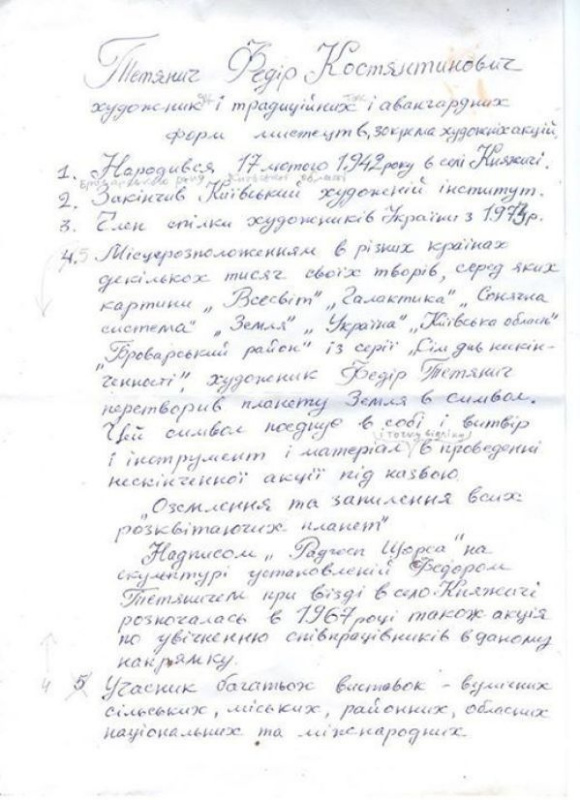 Тетянич Федір Костянтинович
художник і традиційних і авангардних
форм мистецтв, зокрема художніх акцій.
1. Народився 17 лютого 1942 року в селі Княжичі.
Броварського району Київської області
2. Закінчив Київський художній інститут.
3. Член спілки художників України з 1973 р.
4. 5 Місцерозположенням в різних країнах
декількох тисяч своїх творів, серед яких
картини „Всесвіт" „Галактика" „Сонячна
система" „Земля" „Україна" „Київська область"
„Броварський район" із серії „Сім див нескін-
ченності", художник Федір Тетянич
перетворив планету Земля в символ.
Цей символ поєднує в собі і витвір
і точку відліку
і інструмент і матеріал в проведенні
нескінченної акції під назвою
„Оземлення та запилення всих
розквітаючих планет"
Надписом „Радгосп Щорса" на
скульптурі установленій Федором
Тетяничем при візді в село Княжичі
розпочалась в 1967 році також акція
по увічненню співпрацівників в даному
напрямку.
4 5 Учасник багатьох виставок - вуличних
сільських, міських, районних, обласних
національних та міжнародних.